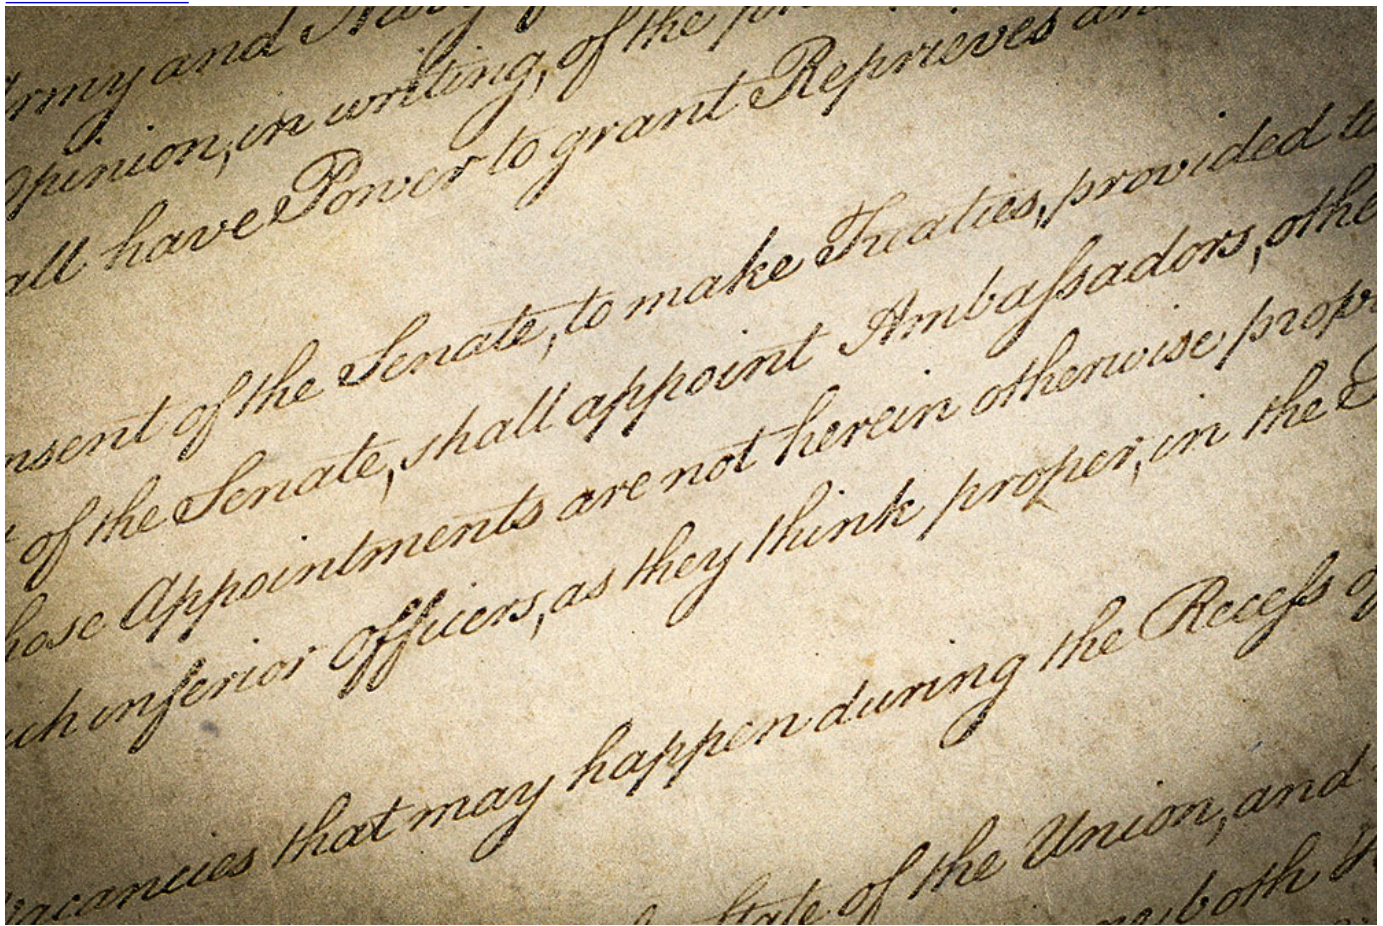 Army and Navy
Opinion, in writing, of the
all have Power to grant Reprieves an
nsent of the Senate, to make Treaties, provided t
of the Senate, shall appoint Ambaſsadors, othe
hose Appointments are not herein otherwise prov
uch inferior Officers, as they think proper, in the
Vacancies that may happen during the Receſs o
State of the Union, and
both H